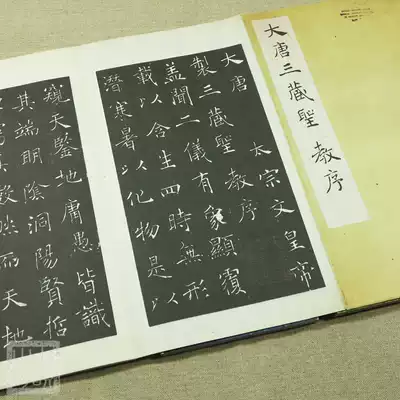 大唐三藏聖教序
大唐 太宗文皇帝
製三藏聖教序
盖聞二儀有象顯覆
載以含生四時無形
潛寒暑以化物是以
窺天鑒地庸愚皆識
其端明陰洞陽賢哲
其數然而天地